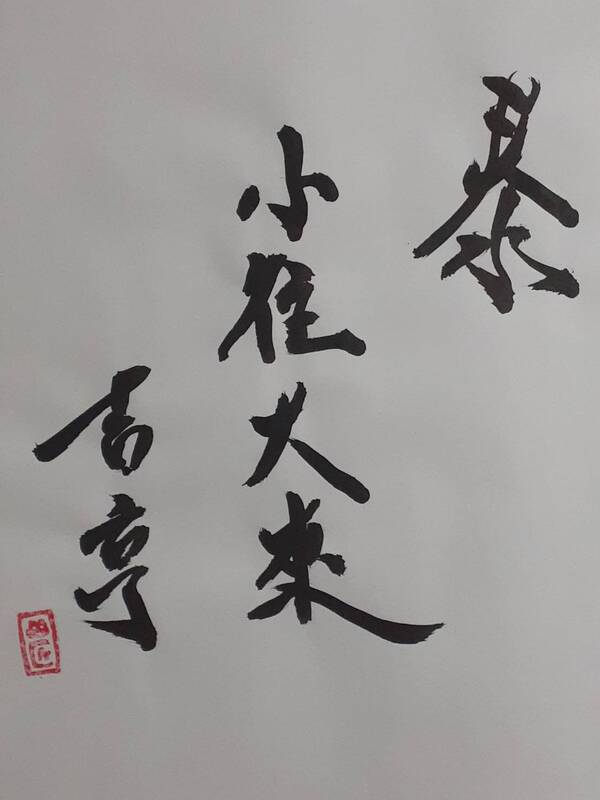 泰
小往大來
吉亨